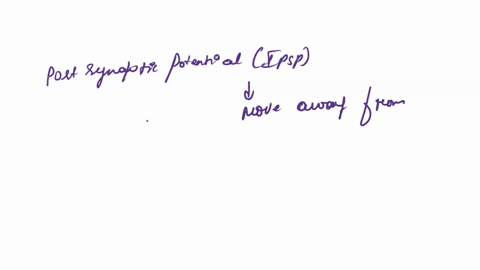 Post synaptic Potential (IPSP)
↓
move away from